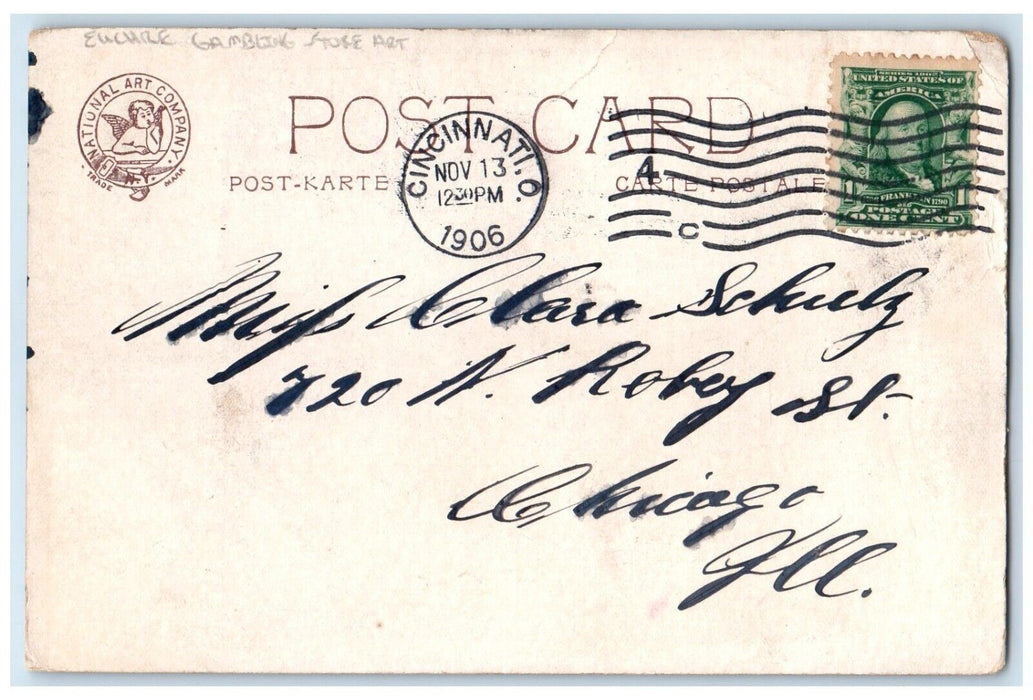 EUCHRE GAMBLING STOVE ART
NATIONAL ART COMPANY
N.Y.
TRADE MARK
POST CARD
POST-KARTE
CARTE POSTALE
CINCINNATI, O.
NOV 13
12 30 PM
1906
4
C
SERIES 1902
UNITED STATES OF
AMERICA
1 FRANKLIN 1790 1
POSTAGE
ONE CENT
Miss Clara Schulz
720 N. Robey St.
Chicago
Ill.